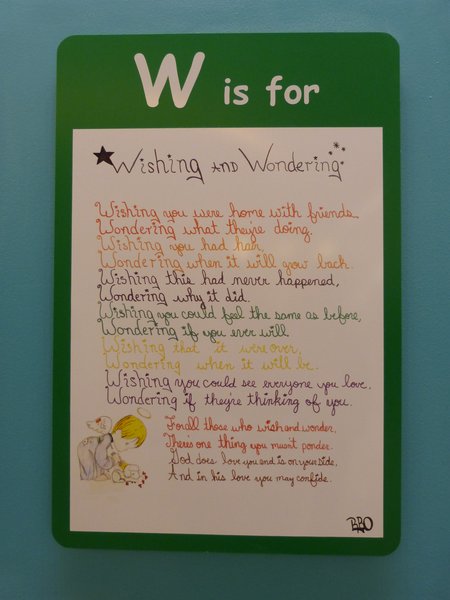 W is for
Wishing AND Wondering
Wishing you were home with friends.
Wondering what they're doing.
Wishing you had hair,
Wondering when it will grow back.
Wishing this had never happened,
Wondering why it did.
Wishing you could feel the same as before,
Wondering if you ever will.
Wishing that it were over,
Wondering when it will be.
Wishing you could see everyone you love,
Wondering if they're thinking of you.
For all those who wish and wonder,
There's one thing you musn't ponder.
God does love you and is on your side,
And in his love you may confide.
BBO